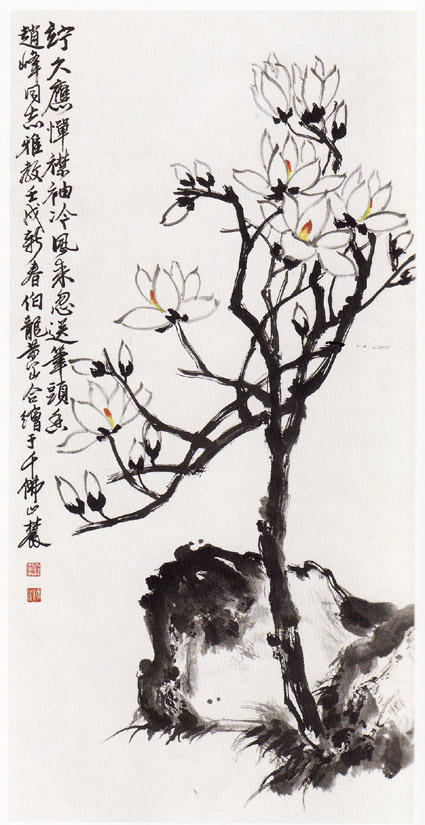 竚久應憚襟袖冷風来忽送筆頭香
趙峰同志雅教壬戌新春伯龍黃山合繪于千佛山麓